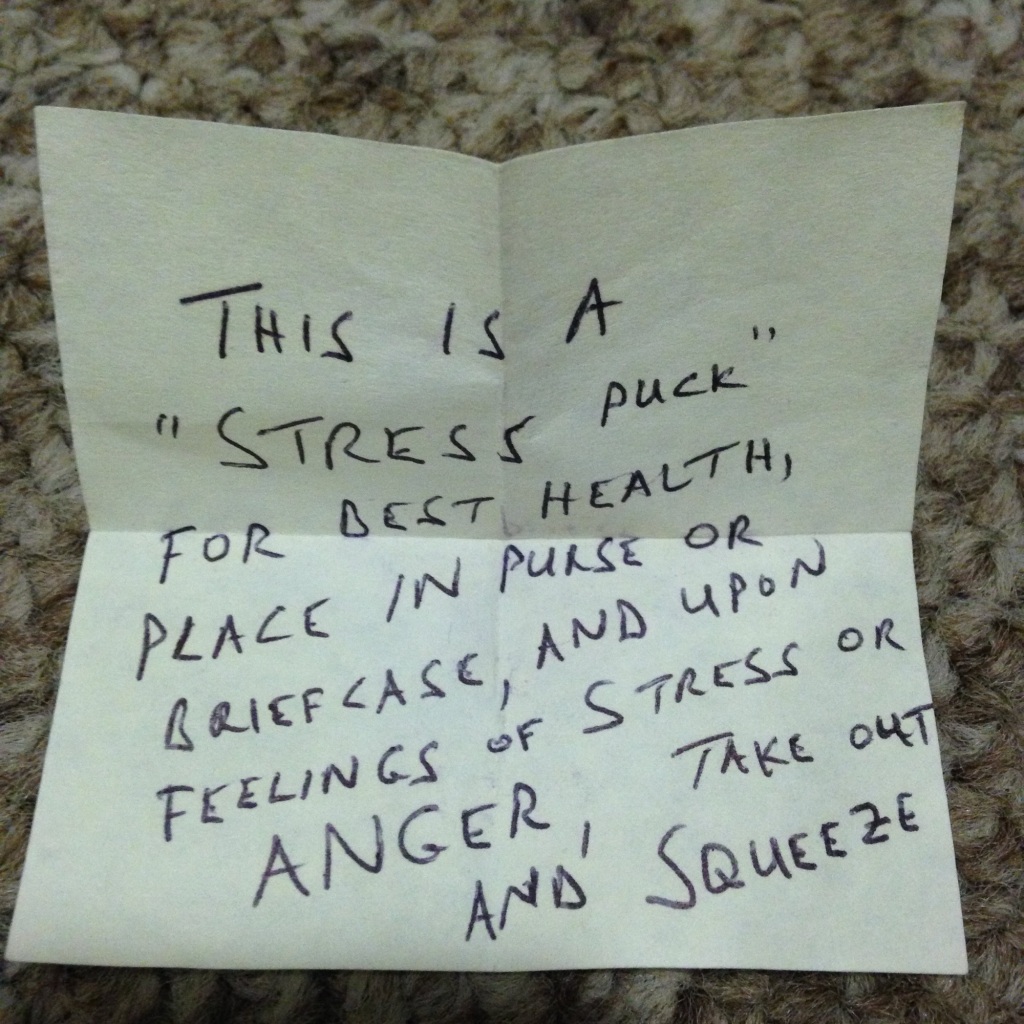 THIS IS A
"STRESS PUCK"
FOR BEST HEALTH,
PLACE IN PURSE OR
BRIEFCASE, AND UPON
FEELINGS OF STRESS OR
ANGER, TAKE OUT
AND SQUEEZE